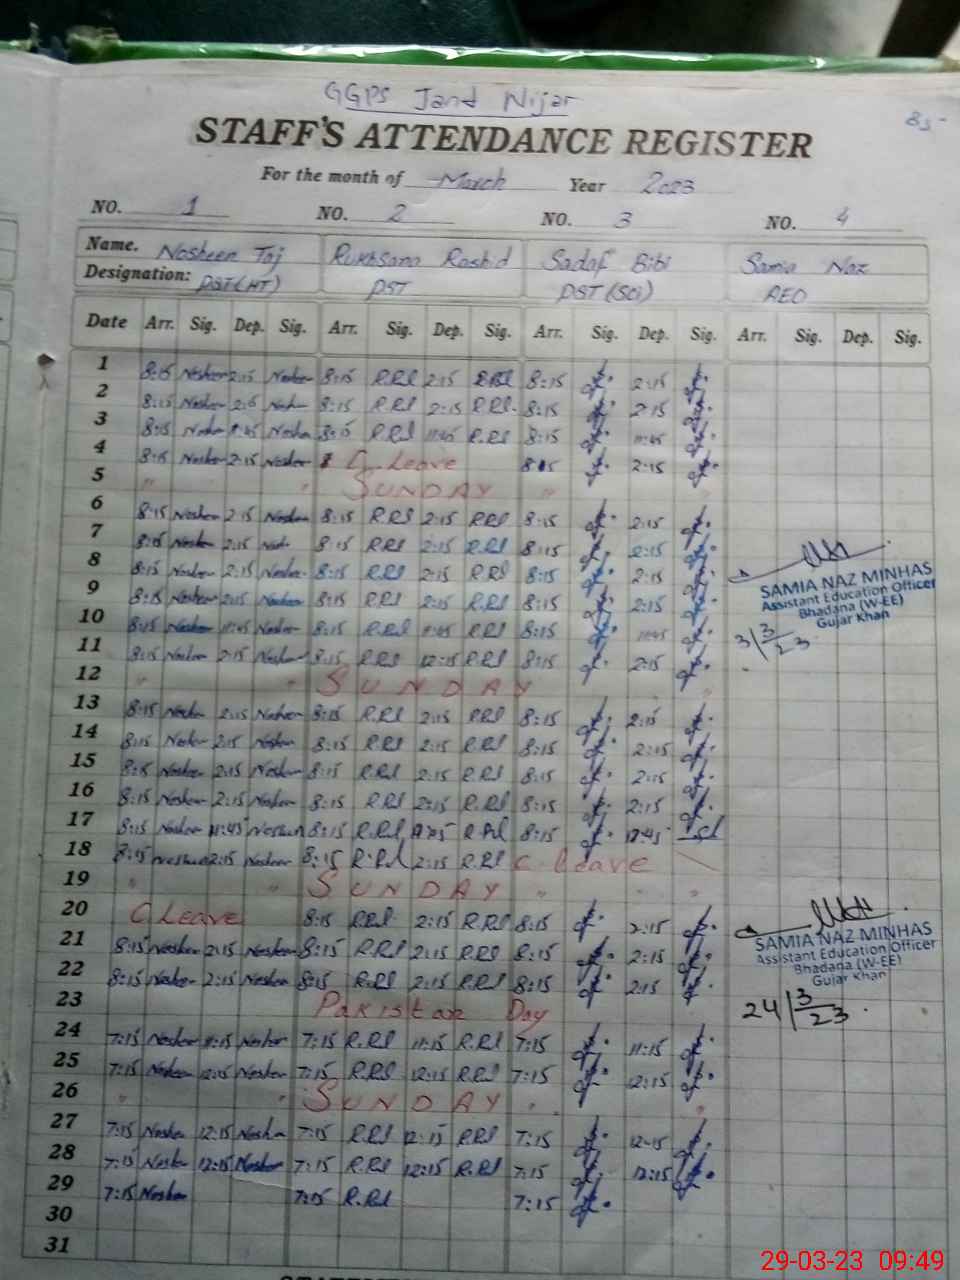 GGPS Jand Nijar
STAFF'S ATTENDANCE REGISTER
For the month of March Year 2023
NO. 1 NO. 2 NO. 3 NO. 4
Name. Nosheen Taj Rukhsana Rashid Sadaf Bibi Samia Naz
Designation: PST(HT) PST PST (Sci) AEO
Date Arr. Sig. Dep. Sig. Arr. Sig. Dep. Sig. Arr. Sig. Dep. Sig. Arr. Sig. Dep. Sig.
1 8:15 Nosheen 2:15 Nosheen 8:15 R.Rd 2:15 R.Rd 8:15 2:15
2 8:15 Nosheen 8:15 R.Rd 2:15 R.Rd. 8:15 2:15
3 8:15 11:45 Nosheen 8:15 R.Rd 11:45 R.Rd 8:15 11:45
4 8:15 Nosheen 2:15 Nosheen C. Leave 8:15 2:15
5 " " SUNDAY "
6 8:15 Nosheen 2:15 Nosheen 8:15 R.Rd 2:15 R.Rd 8:15 2:15
7 8:15 Nosheen 2:15 8:15 R.Rd 2:15 R.Rd 8:15 2:15
8 8:15 Nosheen 2:15 Nosheen 8:15 R.Rd 2:15 R.Rd 8:15 2:15
9 8:15 Nosheen 2:15 Nosheen 8:15 R.Rd 2:15 R.Rd 8:15 2:15
10 8:15 Nosheen 11:45 Nosheen 8:15 R.Rd 11:45 R.Rd 8:15 11:45
11 8:15 Nosheen 2:15 Nosheen 8:15 R.Rd 12:15 R.Rd 8:15 2:15
SAMIA NAZ MINHAS
Assistant Education Officer
Bhadana (W-EE)
Gujar Khan
3/3/23
12 " " SUNDAY
13 8:15 Nosheen 2:15 Nosheen 8:15 R.Rd 2:15 R.Rd 8:15 2:15
14 8:15 Nosheen 2:15 Nosheen 8:15 R.Rd 2:15 R.Rd 8:15 2:15
15 8:15 Nosheen 2:15 Nosheen 8:15 R.Rd 2:15 R.Rd 8:15 2:15
16 8:15 Nosheen 2:15 Nosheen 8:15 R.Rd 2:15 R.Rd 8:15 2:15
17 8:15 Nosheen 11:45 Nosheen 8:15 R.Rd R.Rd 8:15
18 8:15 Nosheen 2:15 Nosheen 8:15 R.Rd 2:15 R.Rd C. Leave
19 " " SUNDAY " "
20 C Leave 8:15 R.Rd 2:15 R.Rd 8:15 2:15
21 8:15 Nosheen 2:15 Nosheen 8:15 R.Rd 2:15 R.Rd 8:15 2:15
22 8:15 Nosheen 2:15 Nosheen 8:15 R.Rd 2:15 R.Rd 8:15 2:15
SAMIA NAZ MINHAS
Assistant Education Officer
Bhadana (W-EE)
Gujar Khan
24/3/23
23 Pakistan Day
24 7:15 Nosheen 11:15 Nosheen 7:15 R.Rd 11:15 R.Rd 7:15 11:15
25 7:15 Nosheen 12:15 Nosheen 7:15 R.Rd 12:15 R.Rd 7:15 12:15
26 " " SUNDAY "
27 7:15 Nosheen 12:15 Nosheen 7:15 R.Rd 12:15 R.Rd 7:15 12:15
28 7:15 Nosheen 12:15 Nosheen 7:15 R.Rd 12:15 R.Rd 7:15 12:15
29 7:15 Nosheen 7:15 R.Rd 7:15
30
31
29-03-23 09:49